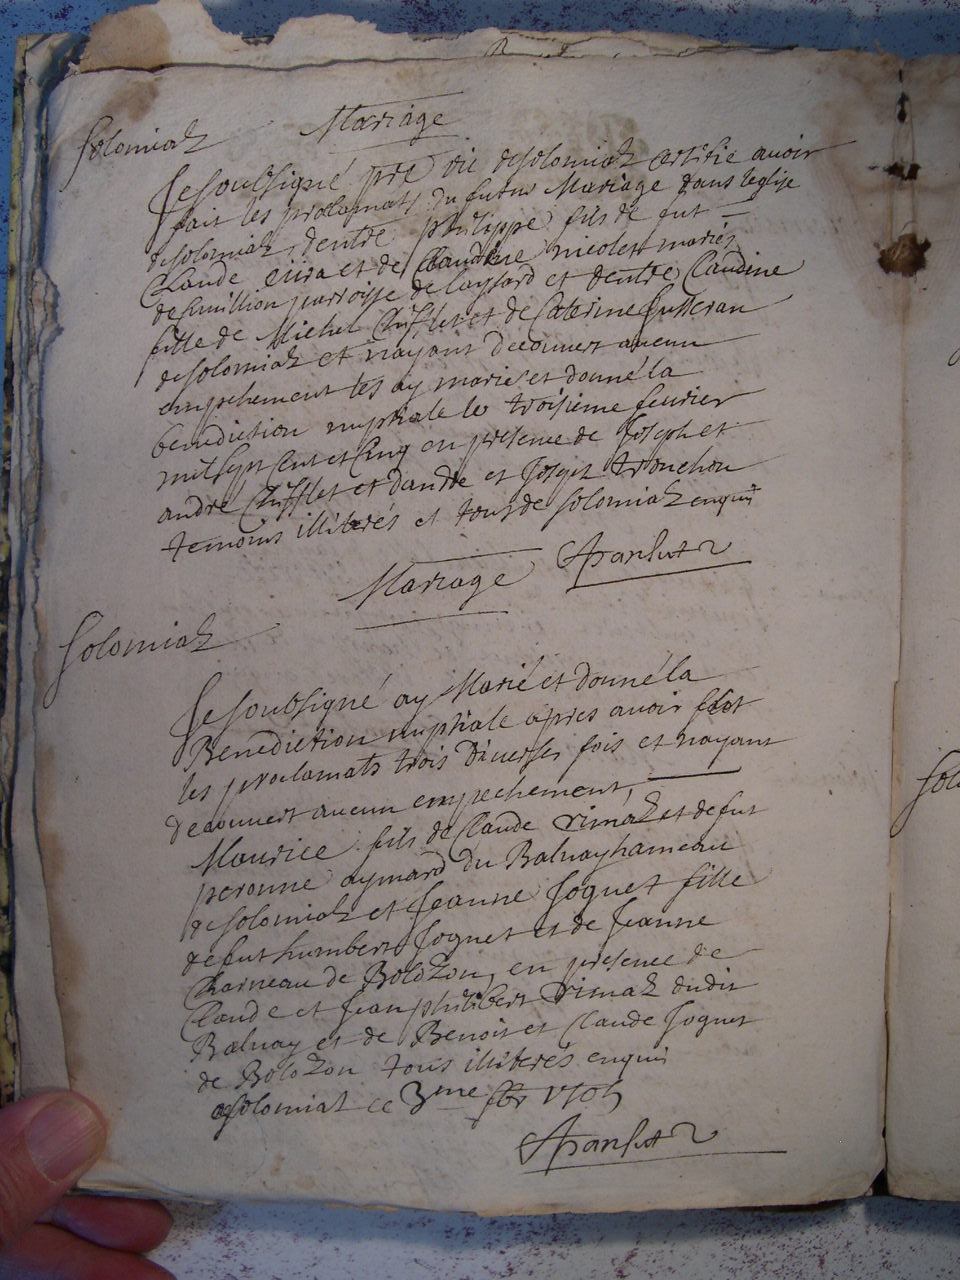 Solomiat
Mariage
Je soubsigné ptre vic de solomiat certifie avoir
fait les proclamats du futur Mariage dans leglise
de solomiat, dentre philippe fils de fut
Claude et de Claudine nicolet mariés
de parroisse de et dentre Claudine
fille de Michel Chifflet et de Caterine
de solomiat et nayant decouvert aucun
empechement les ay mariés et donné la
benediction nuptiale le troisieme feurier
mil sept cent et cinq en presence de Joseph et
andré Chifflet et dandré et tronchon
temoins illiterés et tous de solomiat enquis
Mariage
Solomiat
Je soubsigné ay Marié et donné la
Benediction nuptiale apres avoir
les proclamats trois diverses fois et nayant
decouvert aucun empechement,
Maurice fils de Claude rimat et de fut
peronne aymard du Balvay hameau
de solomiat et Jeanne Joguet fille
de fut humbert Joguet et de Jeanne
Charneau de Bolozon, en presence de
Claude et Jean philibert rimat dudit
Balvay et de Benoit et Claude Joguet
de Bolozon tous illiterés enquis
a solomiat ce 3me 1705